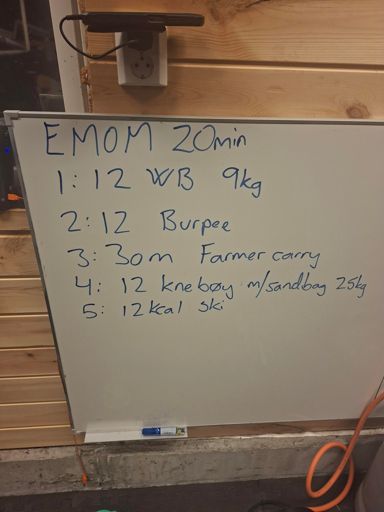 EMOM 20min
1: 12 WB 9kg
2: 12 Burpee
3: 30m Farmer carry
4: 12 knebøy m/sandbag 25kg
5: 12kcal Ski